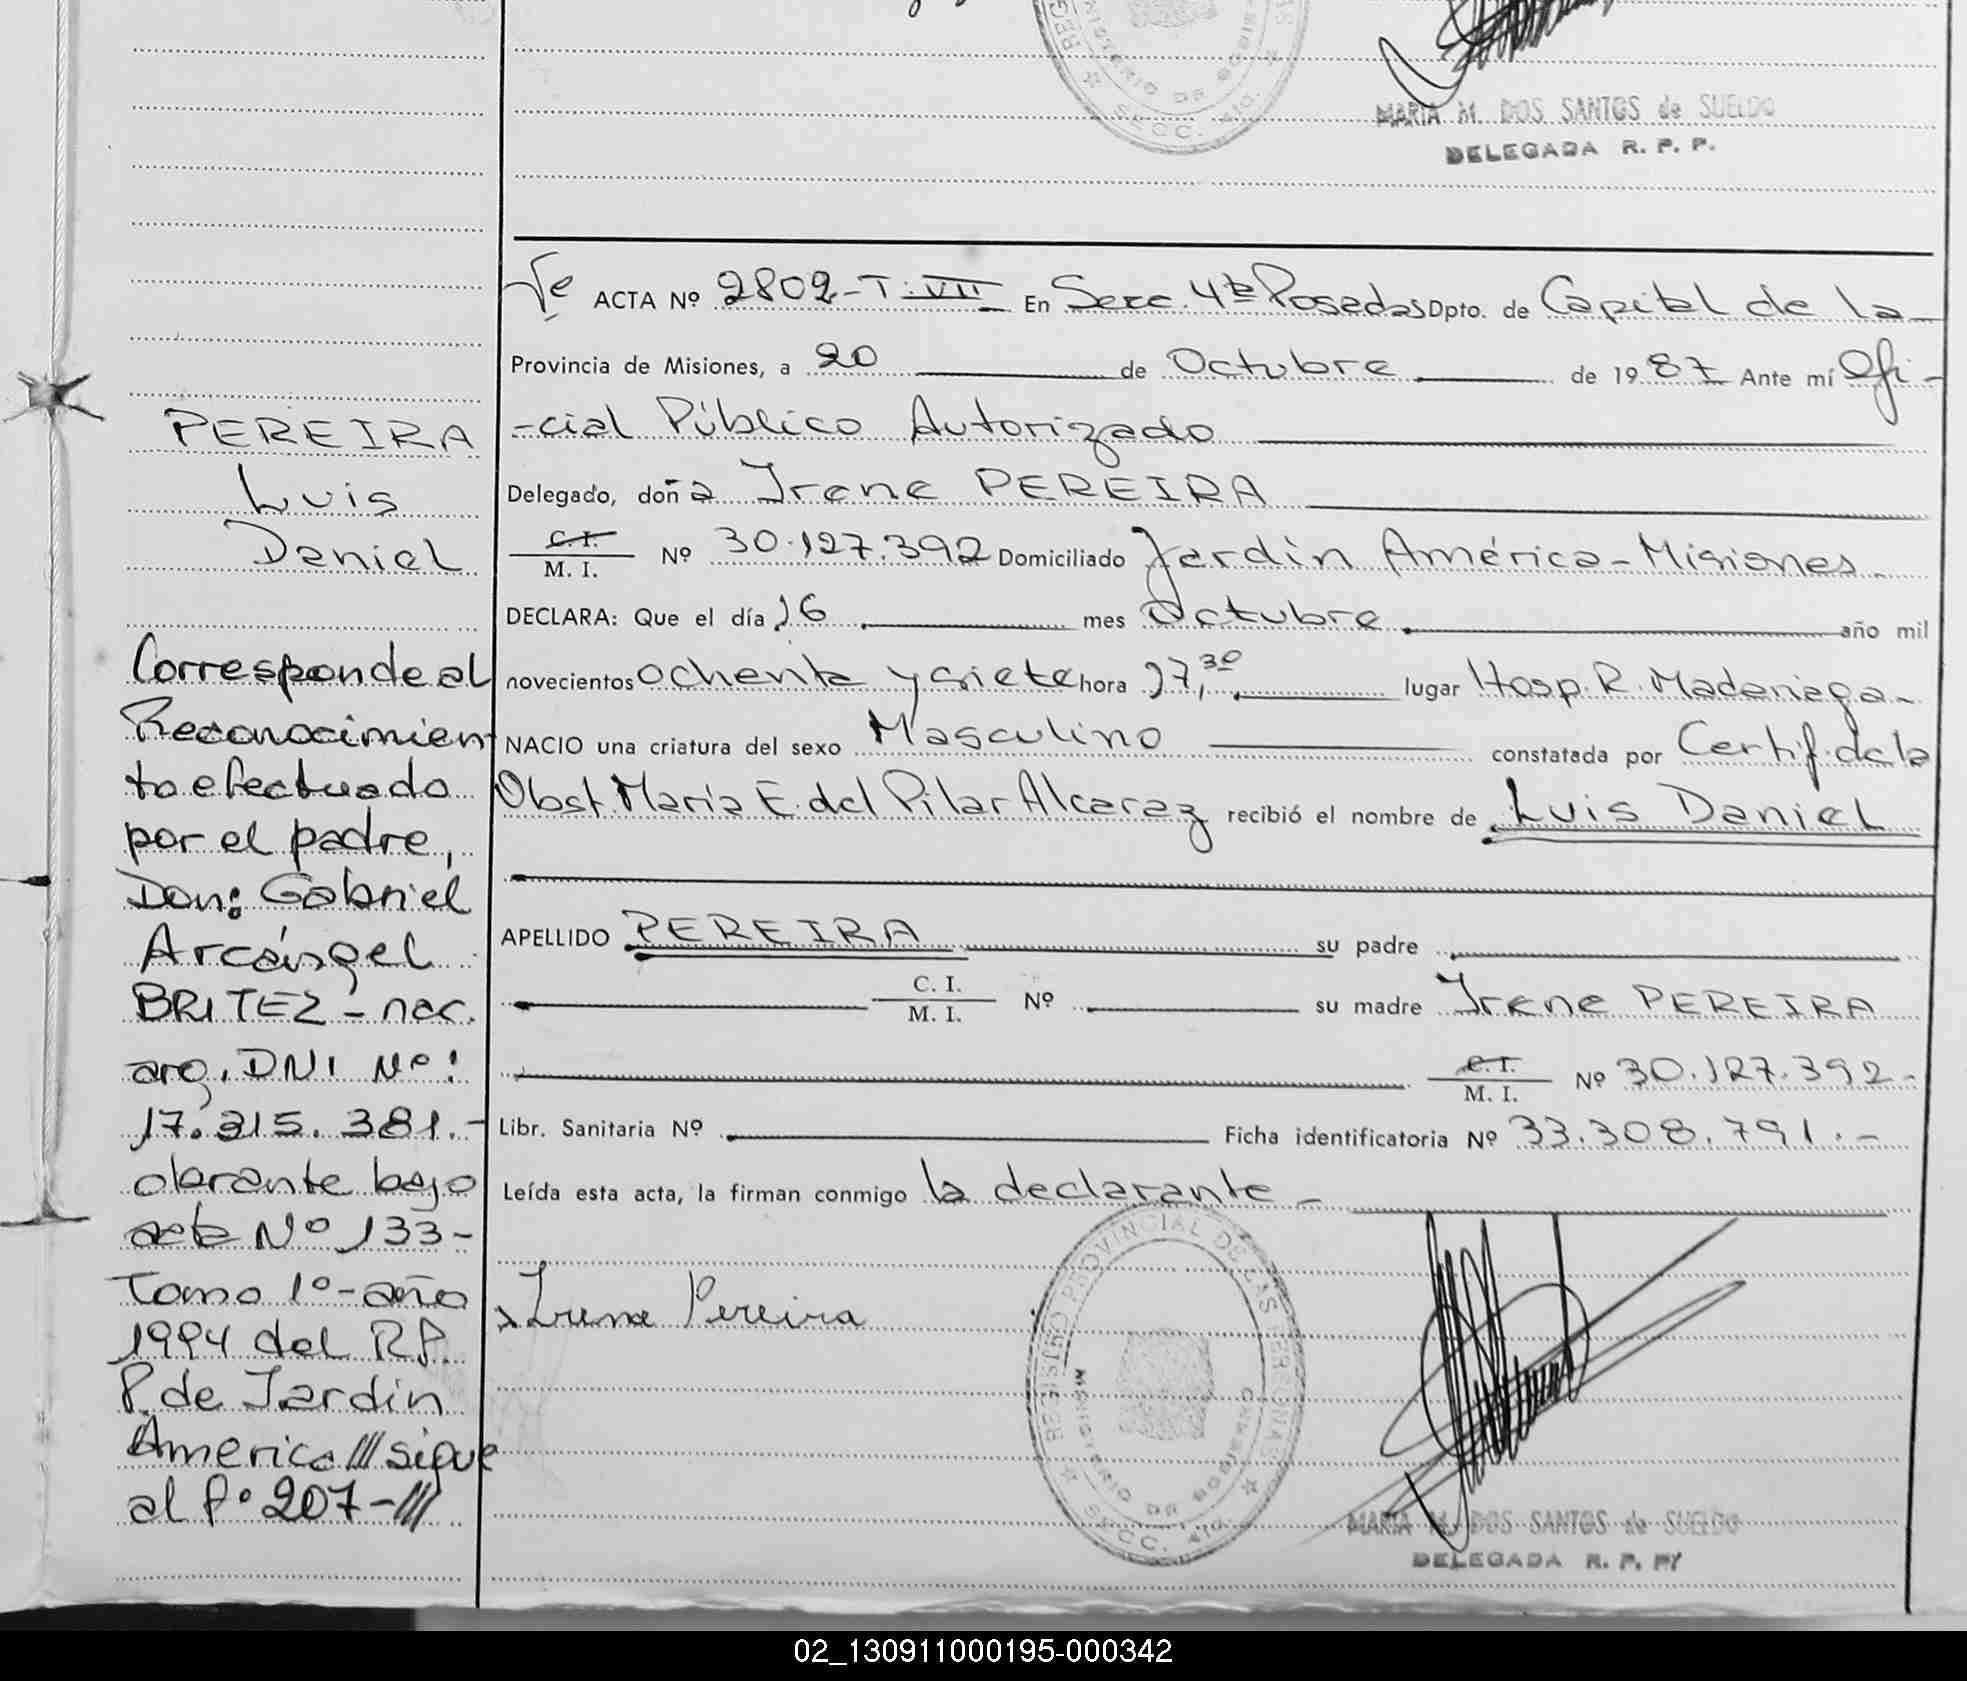 MARIA M. DOS SANTOS de SUELDO
DELEGADA R. P. P.
ACTA Nº 2802-T:VII En Secc. 4ta Posadas Dpto. de Capital de la
Provincia de Misiones, a 20 de Octubre de 1987 Ante mí Ofi-
-cial Público Autorizado
Delegado, doña Irene PEREIRA
C.I.
M. I. Nº 30.127.392 Domiciliado Jardín América-Misiones-
DECLARA: Que el día 16 mes Octubre año mil
novecientos ochenta y siete hora 17,30 lugar Hosp. R. Madariaga-
NACIO una criatura del sexo Masculino constatada por Certif. de la
Obst. María E. del Pilar Alcaraz recibió el nombre de Luis Daniel
APELLIDO PEREIRA su padre
C. I.
M. I. Nº su madre Irene PEREIRA
C. I.
M. I. Nº 30.127.392-
Libr. Sanitaria Nº Ficha identificatoria Nº 33.308.791.-
Leída esta acta, la firman conmigo la declarante-
Irene Pereira
REGISTRO PROVINCIAL DE LAS PERSONAS
MINISTERIO DE GOBIERNO
SECC. 4ta.
MARIA M. DOS SANTOS de SUELDO
DELEGADA R. P. P.
PEREIRA
Luis
Daniel
Corresponde al
Reconocimien
to efectuado
por el padre,
Don: Gabriel
Arcángel
BRITEZ-nac.
arg. DNI Nº:
17.215.381.-
obrante bajo
acta Nº 133-
Tomo 1º-año
1994 del RP.
P. de Jardín
America /// sigue
al fº 207-///
02_130911000195-000342